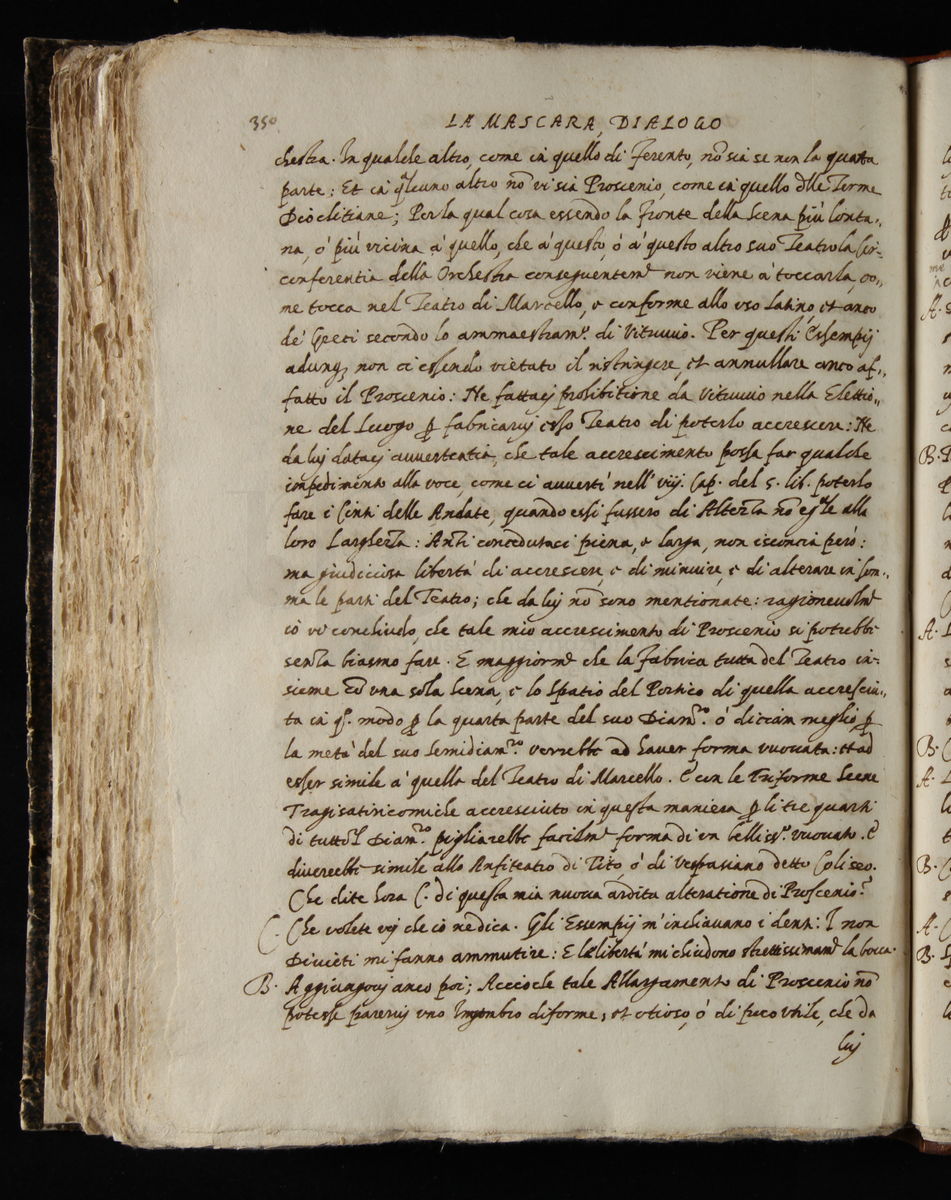 350 LA MASCARA, DIALOGO
chestra. In qualche altro, come in quello di Ferento, nõ sia se non la quarta
parte: Et in q̃lcuno altro nõ vi sia Proscenio, come in quello dlle Terme
Dioclitiane; Per la qual cosa essendo la Fronte della Scena più lonta,,
na, ò più vicina à quello, che à questo, ò à questo altro suo Teatro la Cir-
conferentia della Orchestra conseguentemẽ non viene à toccarla, co,,
me tocca nel Teatro di Marcello, e conforme allo uso latino, et anco
de' Greci secondo lo ammaestramẽ. di Vitruvio. Per questi Essempij
adunq, non ci essendo vietato il ristringere, et annullare anco af,,
fatto il Proscenio: Ne fattaci prohibitione da Vitruvio nella Elettio,,
ne del Luogo p̃ fabricarvj esso Teatro di poterlo accrescere: Ne
da luj dataci avvertentia, che tale accrescimento possa far qualche
impedimento alla voce, come ci avvertì nell' viij. Cap. del 5. lib. poterlo
fare i Cinti delle Andate, quando essi fussero di Altezza nõ eq̃le alla
loro Larghezza: Anzi concedutaci piena, e larga, non isconcia però:
ma giudiciosa libertà di accrescere, e di minuire, e di alterare in som,,
ma le parti del Teatro; che da luj nõ sono mentionate: ragionevolmẽ
iò vi conchiudo, che tale mio accrescimento di Proscenio si potrebbe
senza biasmo fare. E maggiormẽ che la Fabrica tutta del Teatro in-
sieme cõ una sola Scena, e lo Spatio del Portico di quella accresciu,,
ta in qſ. modo p̃ la quarta parte del suo Diam.ro ò diciàm meglio, p̃
la metà del suo Semidiam.ro verrebbe ad haver forma vuovata: et ad
esser simile à quella del Teatro di Marcello. E con le Triforme Scene
Tragisatiricomiche accresciuto in questa maniera p̃ li tre quarti
di tutto'l Diam.ro pigliarebbe facilmẽ forma di un belliss.o vuovato. E
diverebbe simile allo Anfiteatro di Tito, ò di Vespasiano detto Coliseo.
Che dite hora C. di questa mia nuova ardita alteratione di Proscenio?
C. Che volete vij che iò ne dica. Gli Essempij m' inchiavano i denti: I non
Divieti mi fanno ammutire: E la libertà mi chiudono strettissimamẽ la bocca.
B. Aggiungovj anco poi; Acciochè tale Allargamento di Proscenio nõ
potesse parervj uno Ingombro diforme, et otioso, ò di poco utile, che da
luj